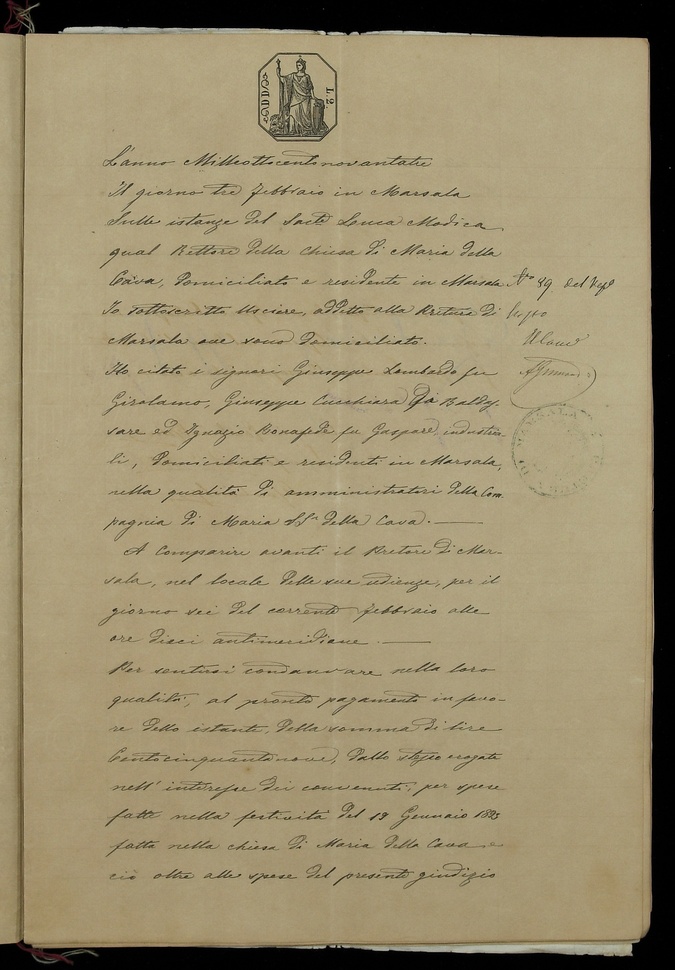 L. 2.
L'anno Milleottocentonovantatre
Il giorno tre Febbraio in Marsala
Sulle istanze del Sacte Luca Modica
qual Rettore della Chiesa di Maria della
Cava, domiciliato e residente in Marsala
Io sottoscritto Usciere, addetto alla Pretura di
Marsala ove sono domiciliato.
Ho citato i signori Giuseppe Lombardo fu
Girolamo, Giuseppe Cucchiara di Baldas
sare ed Ignazio Bonafede, fu Gaspare, industria
li, domiciliati e residenti in Marsala,
nella qualità di amministratori della Com
pagnia di Maria SS.a della Cava. —
A comparire avanti il Pretore di Mar-
sala, nel locale delle sue udienze, per il
giorno sei del corrente Febbraio alle
ore dieci antimeridiane. —
Per sentirsi condannare nella loro
qualità, al pronto pagamento in favo-
re dello istante, della somma di lire
Centocinquantanove, dallo stesso erogate
nell'interesse dei convenuti, per spese
fatte nella festività del 19 Gennaio 1893
fatta nella chiesa di Maria della Cava e
ciò oltre alle spese del presente giudizio
No 89 del Rep